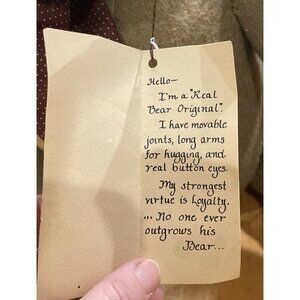 Hello—
I'm a "Real
Bear Original".
I have movable
joints, long arms
for hugging, and
real button eyes.
My strongest
virtue is Loyalty.
... No one ever
outgrows his
Bear...